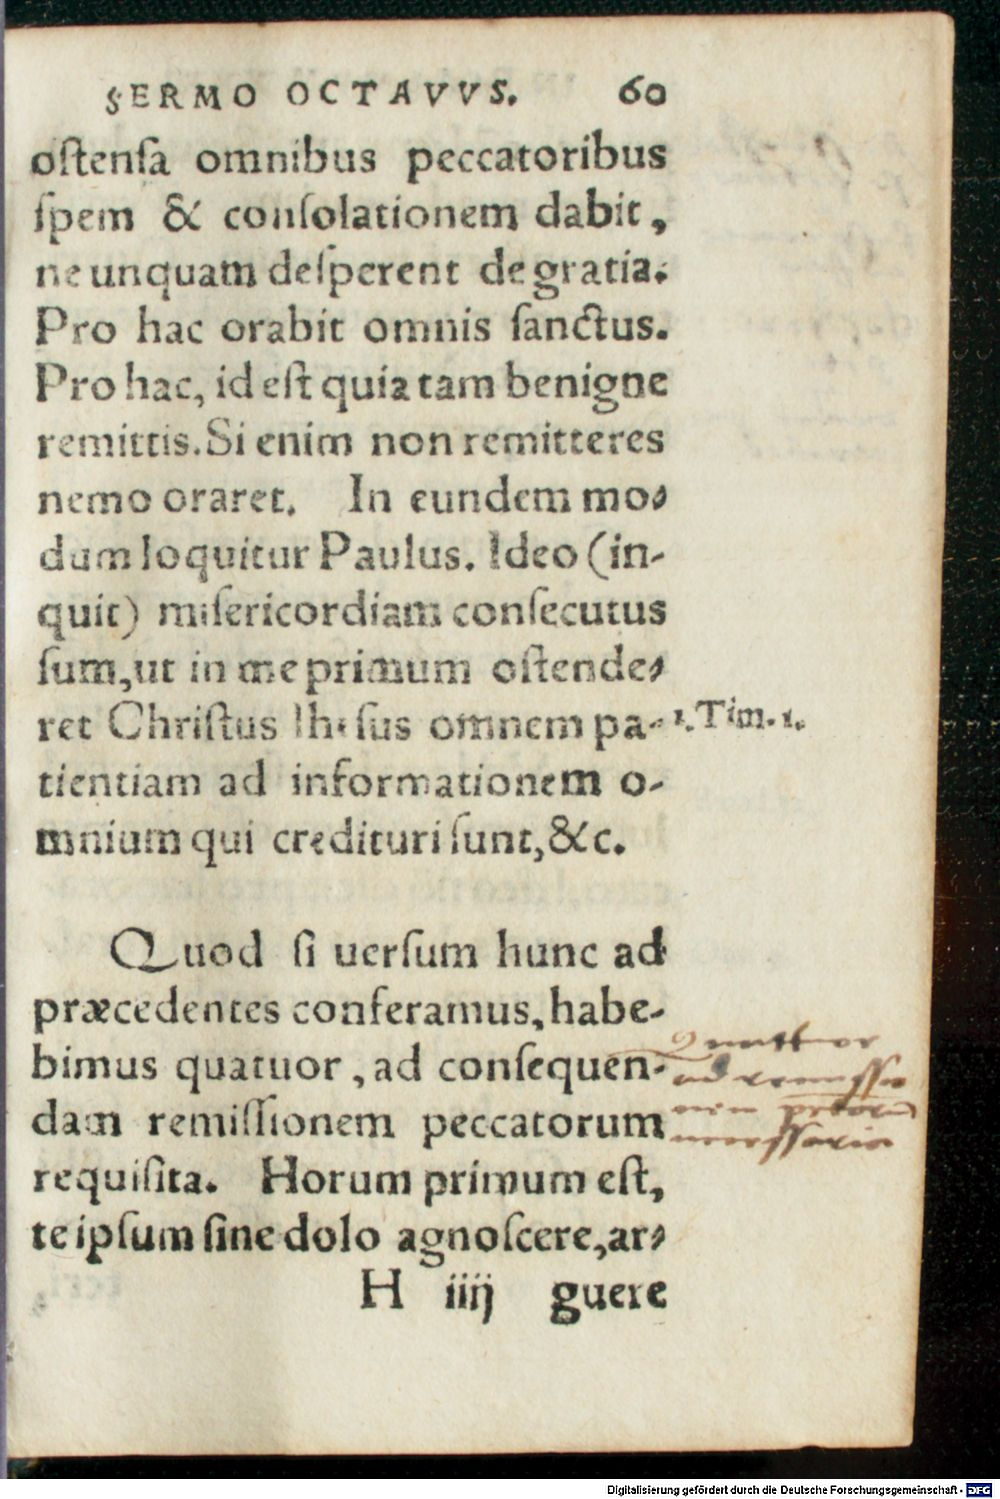 SERMO OCTAVVS. 60
oſtenſa omnibus peccatoribus
ſpem & conſolationem dabit,
ne unquam deſperent de gratia.
Pro hac orabit omnis ſanctus.
Pro hac, id eſt quia tam benigne
remittis. Si enim non remitteres
nemo oraret. In eundem mo-
dum loquitur Paulus. Ideo (in-
quit) miſericordiam conſecutus
ſum, ut in me primum oſtende-
ret Chriſtus Iheſus omnem pa-
1. Tim. 1.
tientiam ad informationem o-
mnium qui credituri ſunt, &c.
Quod ſi uerſum hunc ad
præcedentes conferamus, habe-
bimus quatuor, ad conſequen-
dam remiſſionem peccatorum
requiſita. Horum primum eſt,
te ipſum ſine dolo agnoſcere, ar-
H iiij guere
Quattuor
ad remiſſio
nem pctorū
neceſſaria
Digitalisierung gefördert durch die Deutsche Forschungsgemeinschaft - DFG